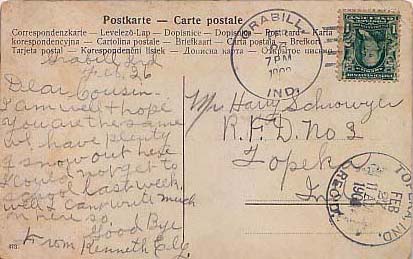 Postkarte — Carte postale
Correspondenzkarte - Levelező-Lap - Dopisnice - Dopisnica - Post card - Karta
korespondencyjna - Cartolina postale - Briefkaart - Carta postala - Brefkort
Tarjeta postal - Korespondenční lístek - Дописна карта - Открытое письмо
GRABILL
7PM
IND.
Grabill Ind
Feb. 26
Dear Cousin-
I am well & hope
you are the same
We have plenty
of snow out here
I could not get to
last week
well I can't write much
in here so,
Good Bye
From Kenneth Ely.
Mr Harry Schrowyer
R.F.D. No 3
Topeka
Ind
TOPEKA, IND.
FEB
27
REC'D.